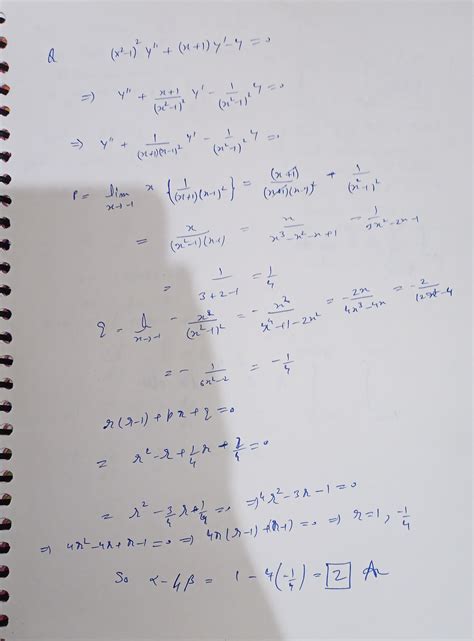 Q (x²-1)² y'' + (x+1) y' - y = 0
⇒ y'' + (x+1)/(x²-1)² y' - 1/(x²-1)² y = 0
⇒ y'' + 1/((x+1)(x-1)²) y' - 1/(x²-1)² y = 0
P = lim x→-1 x { 1/((x+1)(x-1)²) } = (x+1)/((x+1)(x-1)²) + 1/(x²-1)²
= x/((x²-1)(x-1)) = x/(x³-x²-x+1) = 1/(3x²-2x-1)
= 1/(3+2-1) = 1/4
q = l x→-1 - x²/(x²-1)² = - x²/(x⁴+1-2x²) = -2x/(4x³-4x) = -2/(12x²-4)
= - 1/(6x²-2) = -1/4
r(r-1) + pr + q = 0
= r² - r + 1/4 r + q/4 = 0
= r² - 3/4 r + 1/4 = 0 ⇒ 4r² - 3r - 1 = 0
⇒ 4r² - 4r + r - 1 = 0 ⇒ 4r(r-1) + (r-1) = 0 ⇒ r = 1, -1/4
So α - 4β = 1 - 4(-1/4) = 2 Ans